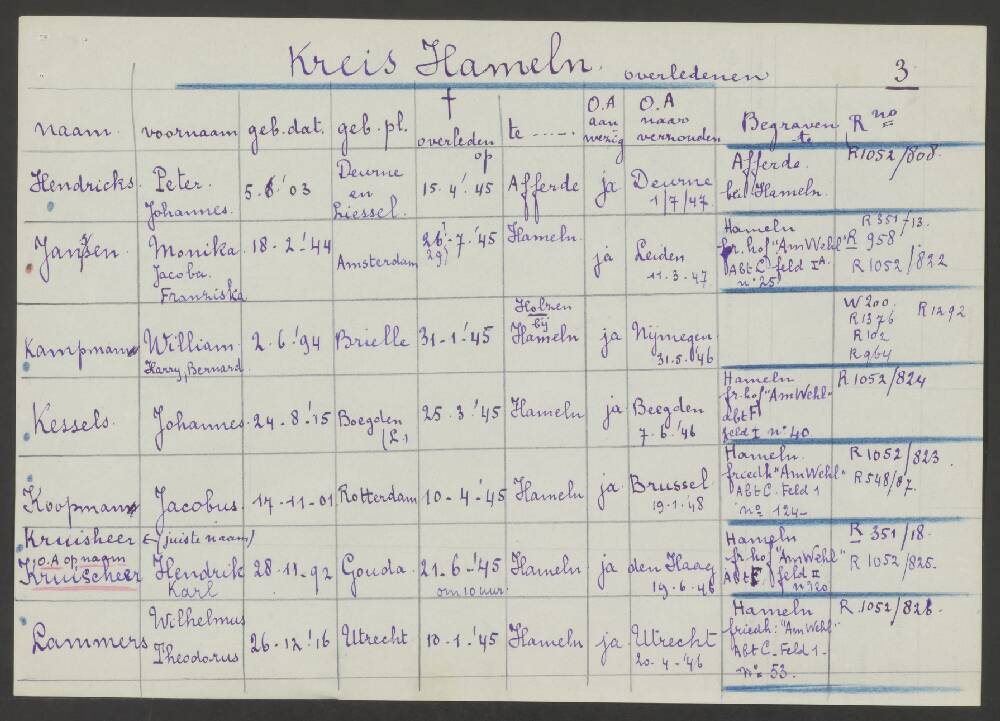 Kreis Hameln. overledenen 3
naam. voornaam geb. dat. geb. pl. † overleden op te ..... O.A aan wezig O.A naar verzonden Begraven te R no
Hendricks Peter Johannes. 5. 8. '03 Deurne en Liessel. 15. 4. '45 Afferde ja Deurne 1/7/47 Afferde. bei Hameln. R1052/808.
Janssen Monika Jacoba. Franziska 18 - 2 - '44 Amsterdam 26 - 7. '45 29) Hameln. ja Leiden 11. 3. -47 Hameln fr. hof "Am Wehl" Abt C) feld I A. no 25 R 351/13. R 958/ R 1052/822
Kampman William Harry, Bernard 2. 6. '94 Brielle 31 - 1 - '45 Holzen bij Hameln ja Nijmegen. 31. 5. '46 W 200. R1376 R102 R964 R1292
Kessels. Johannes. 24. 8. '15 Boegden (L.) 25. 3. '45 Hameln ja Beegden 7. 6. '46 Hameln fr. hof "Am Wehl" abt F feld I no 40 R 1052/824
Koopman Jacobus. 17-11-01 Rotterdam 10 - 4 - '45 Hameln ja Brussel 19-1-'48 Hameln. friedh "Am Wehl" Abt C. Feld 1 no 124- R 1052/823 R 548/87.
Kruisheer ← (juiste naam)
O.A op naam
Kruischeer Hendrik Karl 28-11-92 Gouda. 21 - 6 - '45 om 10 uur. Hameln ja den Haag 19. 6 - 46 Hameln fr. hof "Am Wehl" Abt F feld II no 120 R 351/18. R 1052/825.
Lammers Wilhelmus Theodorus 26-12-'16 Utrecht 10 - 1. '45 Hameln ja Utrecht 20. 4 - '46 Hameln friedh: "Am Wehl" Abt C - Feld 1 - no 53. R. 1052/826.